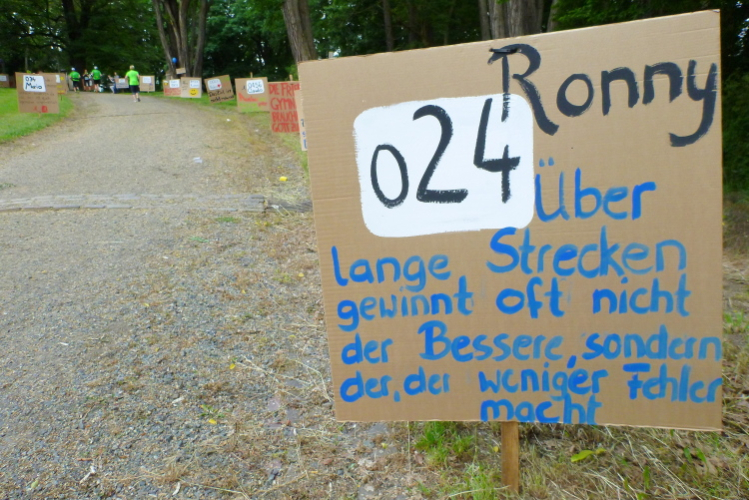 Ronny
024
Über
lange Strecken
gewinnt oft nicht
der Bessere, sondern
der, der weniger Fehler
macht
024